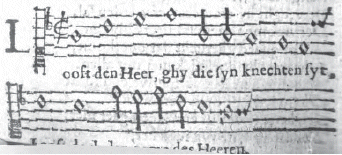 Looft den Heer, ghy die syn knechten syt,
des Heeren.